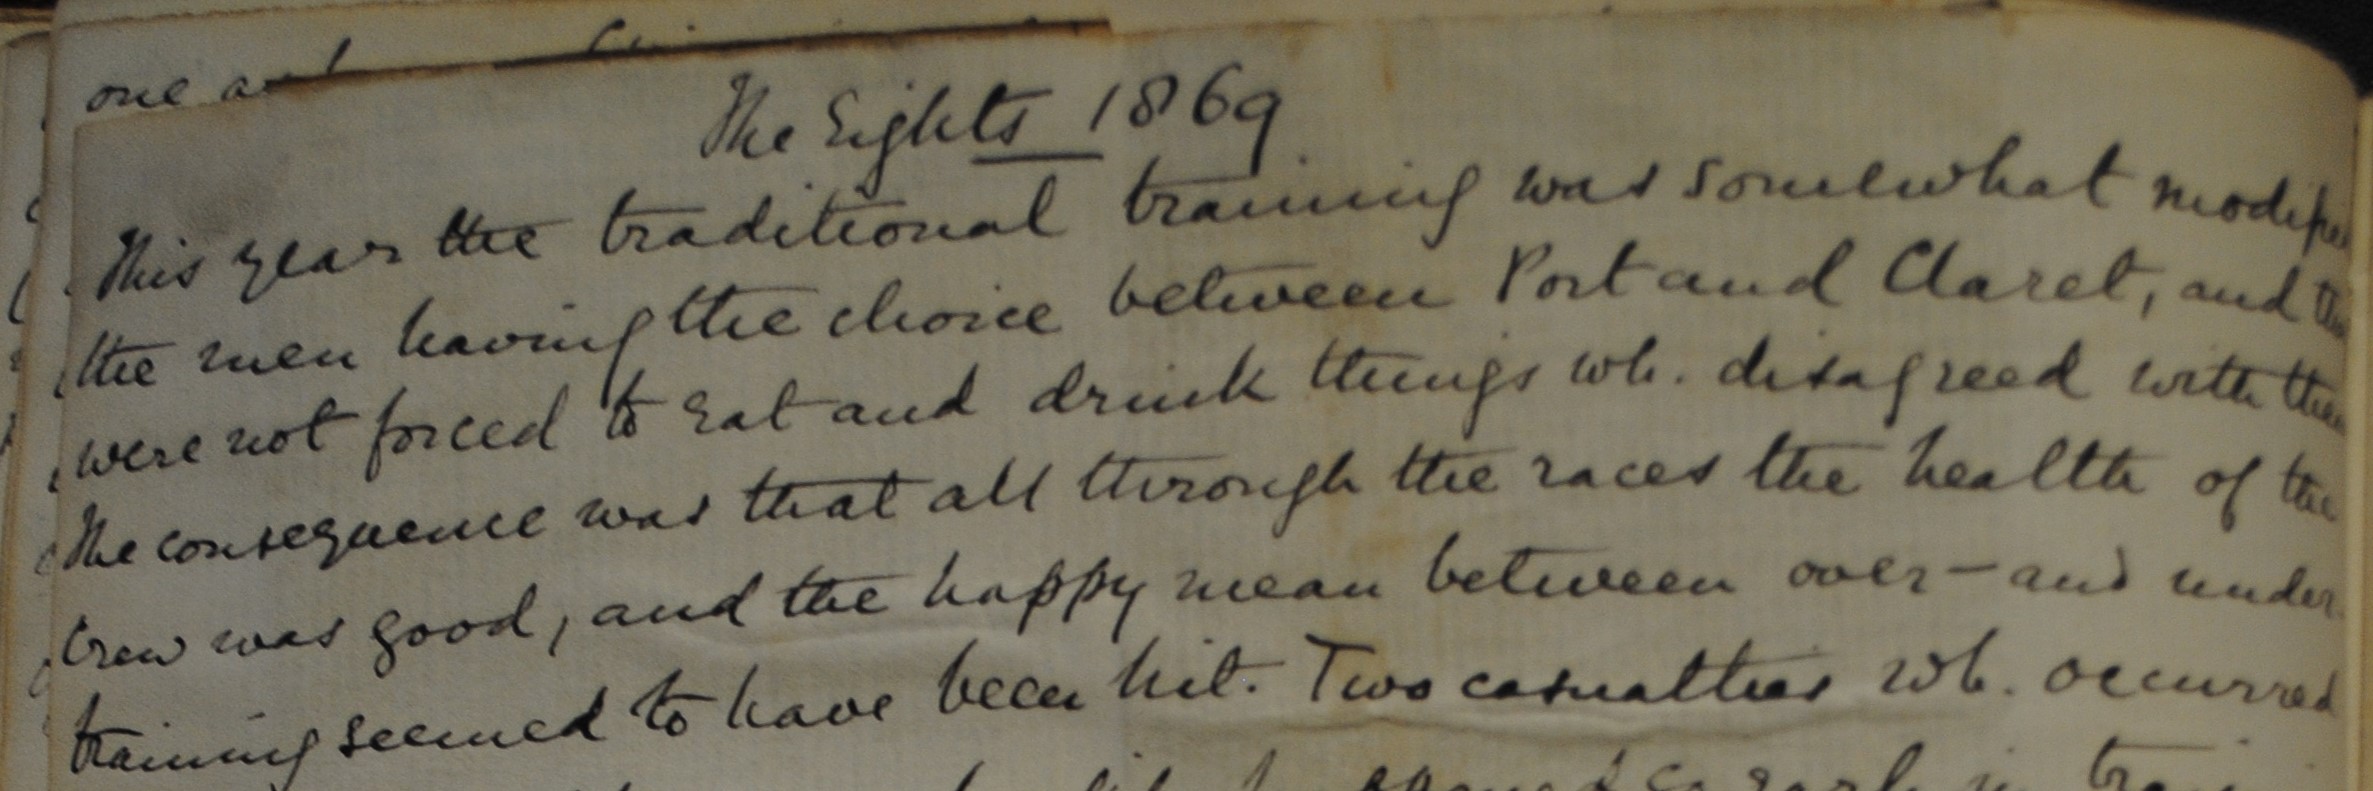 one
The Eights 1869
This year the traditional training was somewhat modified
the men having the choice between Port and Claret, and
were not forced to eat and drink things wh. disagreed with them
The consequence was that all through the races the health of the
Crew was good, and the happy mean between over-and under
training seemed to have been hit. Two casualties wh. occurred
early in